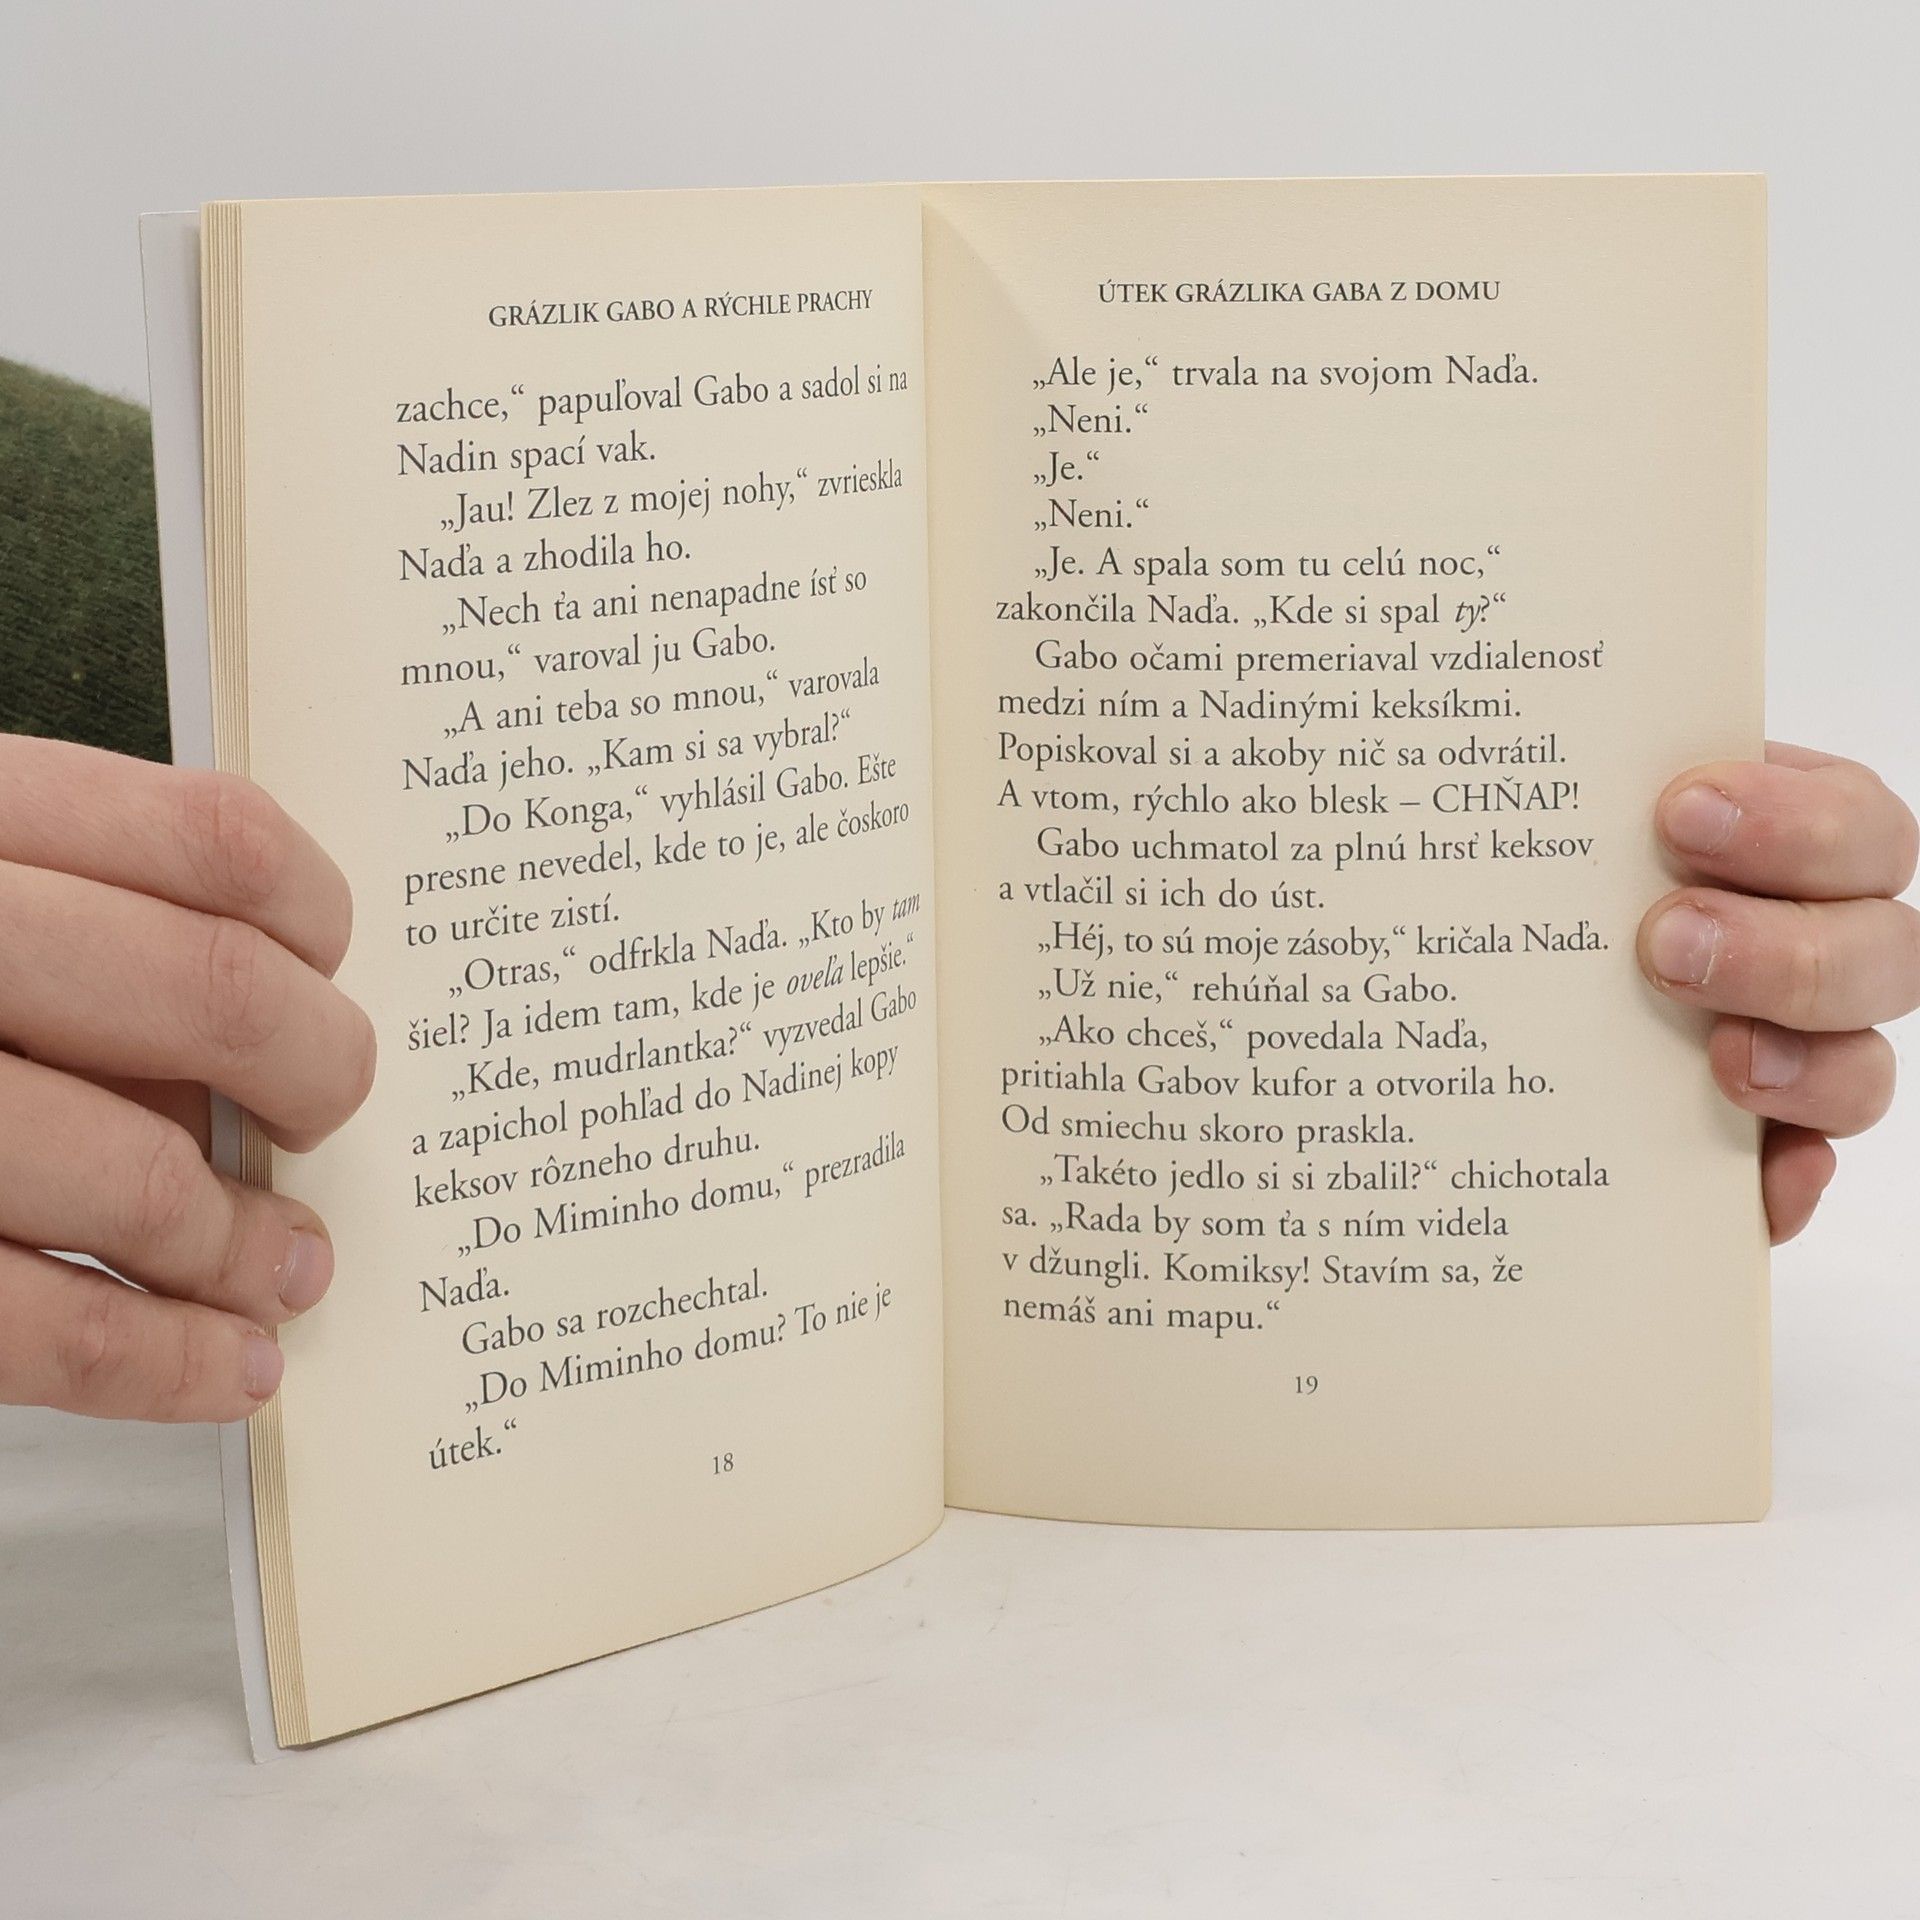 GRÁZLIK GABO A RÝCHLE PRACHY
zachce,“ papuľoval Gabo a sadol si na
Nadin spací vak.
„Jau! Zlez z mojej nohy,“ zvrieskla
Naďa a zhodila ho.
„Nech ťa ani nenapadne ísť so
mnou,“ varoval ju Gabo.
„A ani teba so mnou,“ varovala
Naďa jeho. „Kam si sa vybral?“
„Do Konga,“ vyhlásil Gabo. Ešte
presne nevedel, kde to je, ale čoskoro
to určite zistí.
„Otras,“ odfrkla Naďa. „Kto by tam
šiel? Ja idem tam, kde je oveľa lepšie.“
„Kde, mudrlantka?“ vyzvedal Gabo
a zapichol pohľad do Nadinej kopy
keksov rôzneho druhu.
„Do Miminho domu,“ prezradila
Naďa.
Gabo sa rozchechtal.
„Do Miminho domu? To nie je
útek.“
18
ÚTEK GRÁZLIKA GABA Z DOMU
„Ale je,“ trvala na svojom Naďa.
„Neni.“
„Je.“
„Neni.“
„Je. A spala som tu celú noc,“
zakončila Naďa. „Kde si spal ty?“
Gabo očami premeriaval vzdialenosť
medzi ním a Nadinými keksíkmi.
Popiskoval si a akoby nič sa odvrátil.
A vtom, rýchlo ako blesk – CHŇAP!
Gabo uchmatol za plnú hrsť keksov
a vtlačil si ich do úst.
„Héj, to sú moje zásoby,“ kričala Naďa.
„Už nie,“ rehúňal sa Gabo.
„Ako chceš,“ povedala Naďa,
pritiahla Gabov kufor a otvorila ho.
Od smiechu skoro praskla.
„Takéto jedlo si si zbalil?“ chichotala
sa. „Rada by som ťa s ním videla
v džungli. Komiksy! Stavím sa, že
nemáš ani mapu.“
19